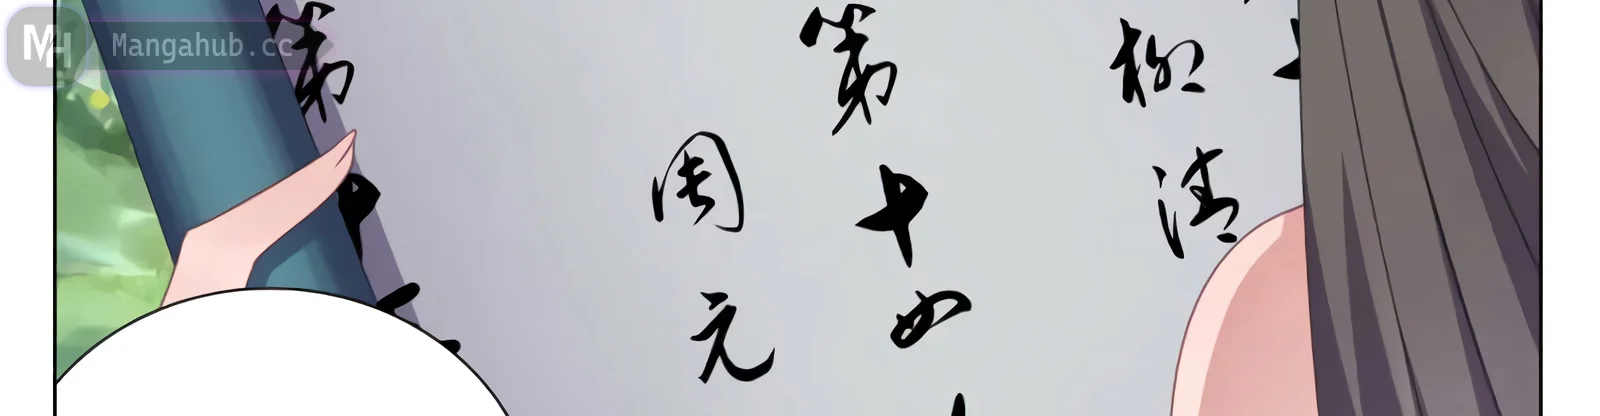 MH Mangahub.cc
柳清
第十四
周元
第